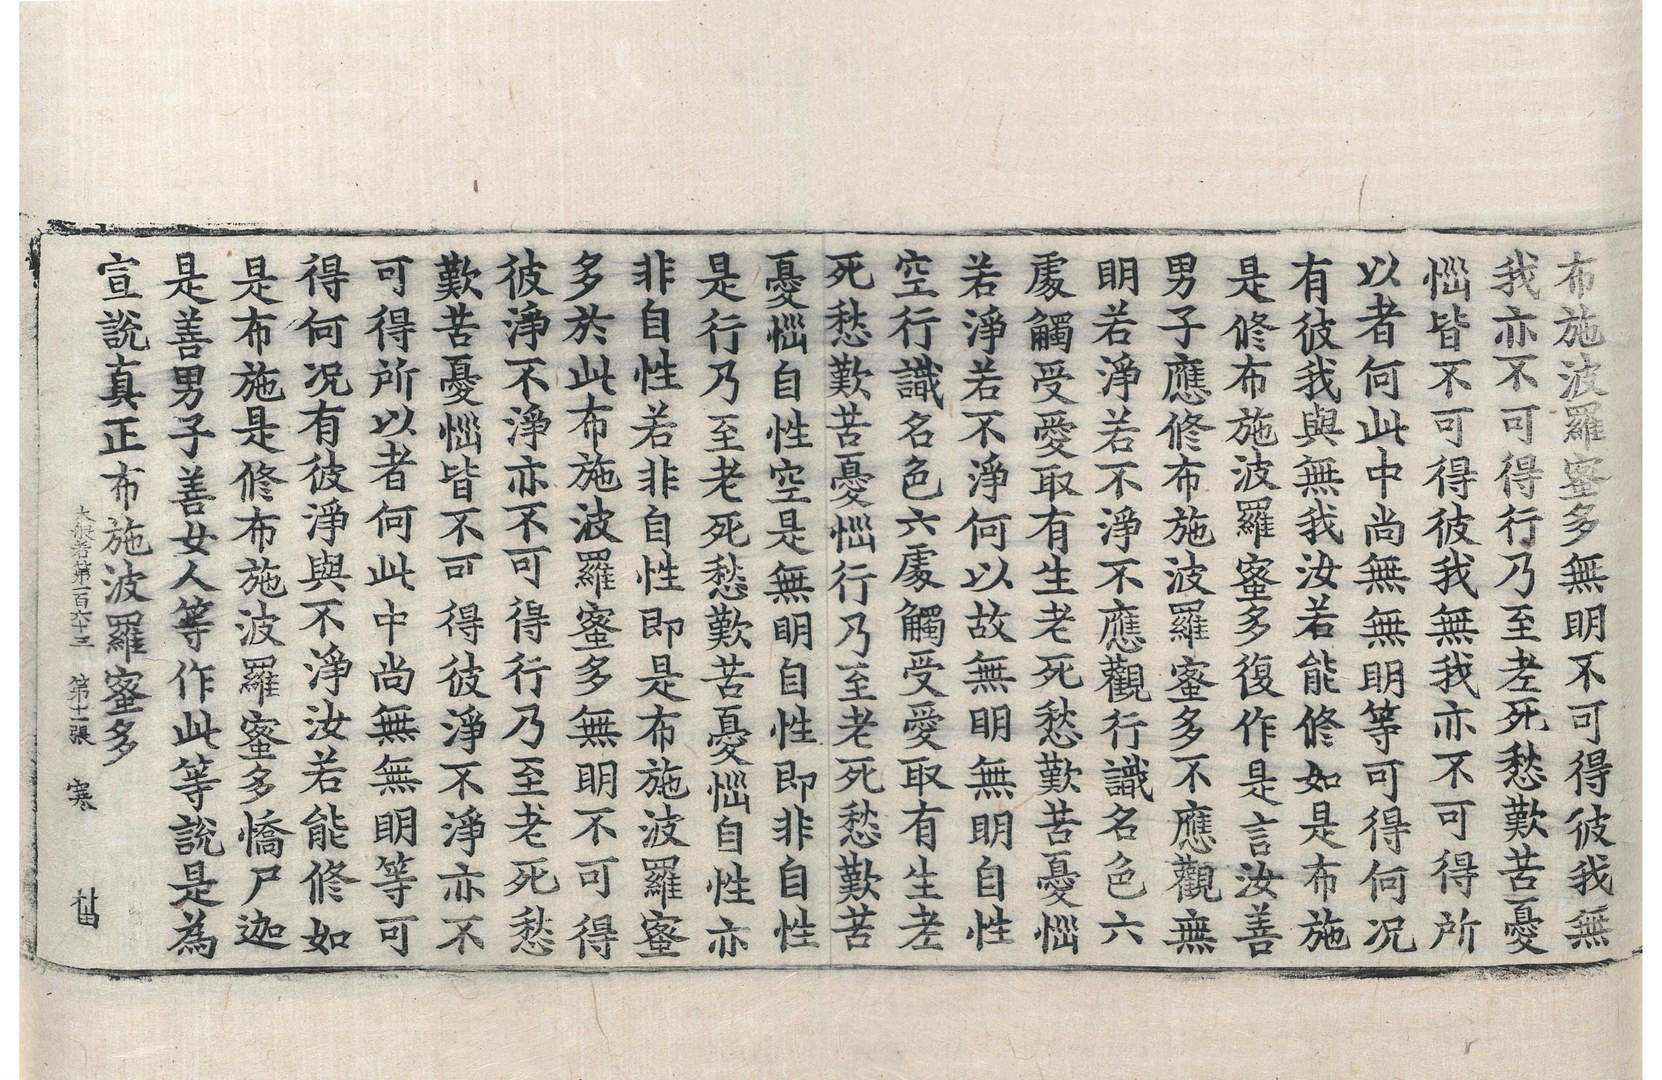 布施波羅蜜多無明不可得彼我無
我亦不可得行乃至老死愁歎苦憂
惱皆不可得彼我無我亦不可得所
以者何此中尚無無明等可得何况
有彼我與無我汝若能修如是布施
是修布施波羅蜜多復作是言汝善
男子應修布施波羅蜜多不應觀無
明若淨若不淨不應觀行識名色六
處觸受愛取有生老死愁歎苦憂惱
若淨若不淨何以故無明無明自性
空行識名色六處觸受愛取有生老
死愁歎苦憂惱行乃至老死愁歎苦
憂惱自性空是無明自性即非自性
是行乃至老死愁歎苦憂惱自性亦
非自性若非自性即是布施波羅蜜
多於此布施波羅蜜多無明不可得
彼淨不淨亦不可得行乃至老死愁
歎苦憂惱皆不可得彼淨不淨亦不
可得所以者何此中尚無無明等可
得何况有彼淨與不淨汝若能修如
是布施是修布施波羅蜜多憍尸迦
是善男子善女人等作此等說是為
宣說真正布施波羅蜜多
大般若第一百六十三 第十一張 寒